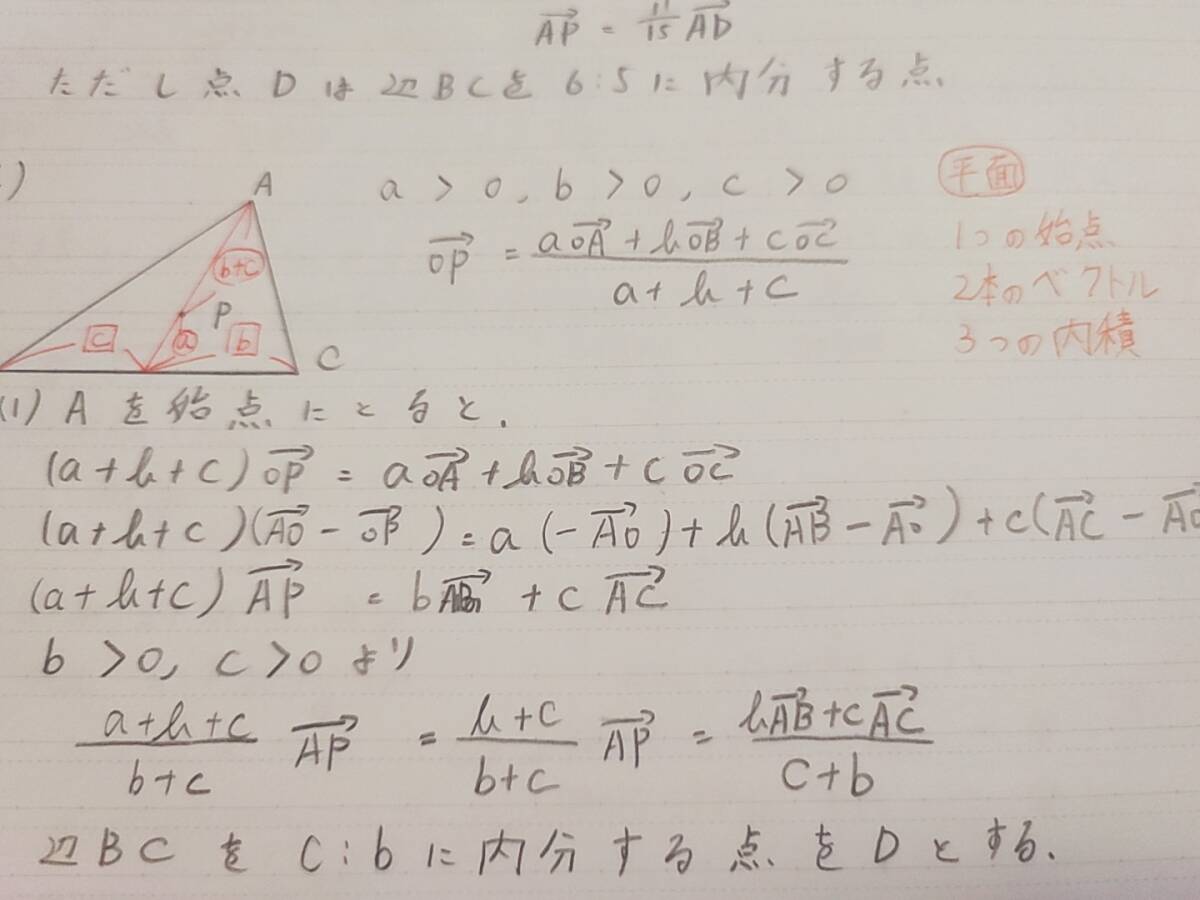 AP = 11/15 AD
ただし点Dは辺BCを6:5に内分する点
)
A
a > 0, b > 0, c > 0
平面
OP = (aOA + bOB + cOC) / (a + b + c)
1つの始点
2本のベクトル
3つの内積
b+c
P
c
a
b
C
(1) Aを始点にとると、
(a+b+c)OP = aOA + bOB + cOC
(a+b+c)(AO - OP) = a(-AO) + b(AB - AO) + c(AC - AO
(a+b+c)AP = bAB + cAC
b > 0, c > 0 より
(a+b+c)/(b+c) AP = (b+c)/(b+c) AP = (bAB + cAC)/(c+b)
辺BCをc:bに内分する点をDとする.